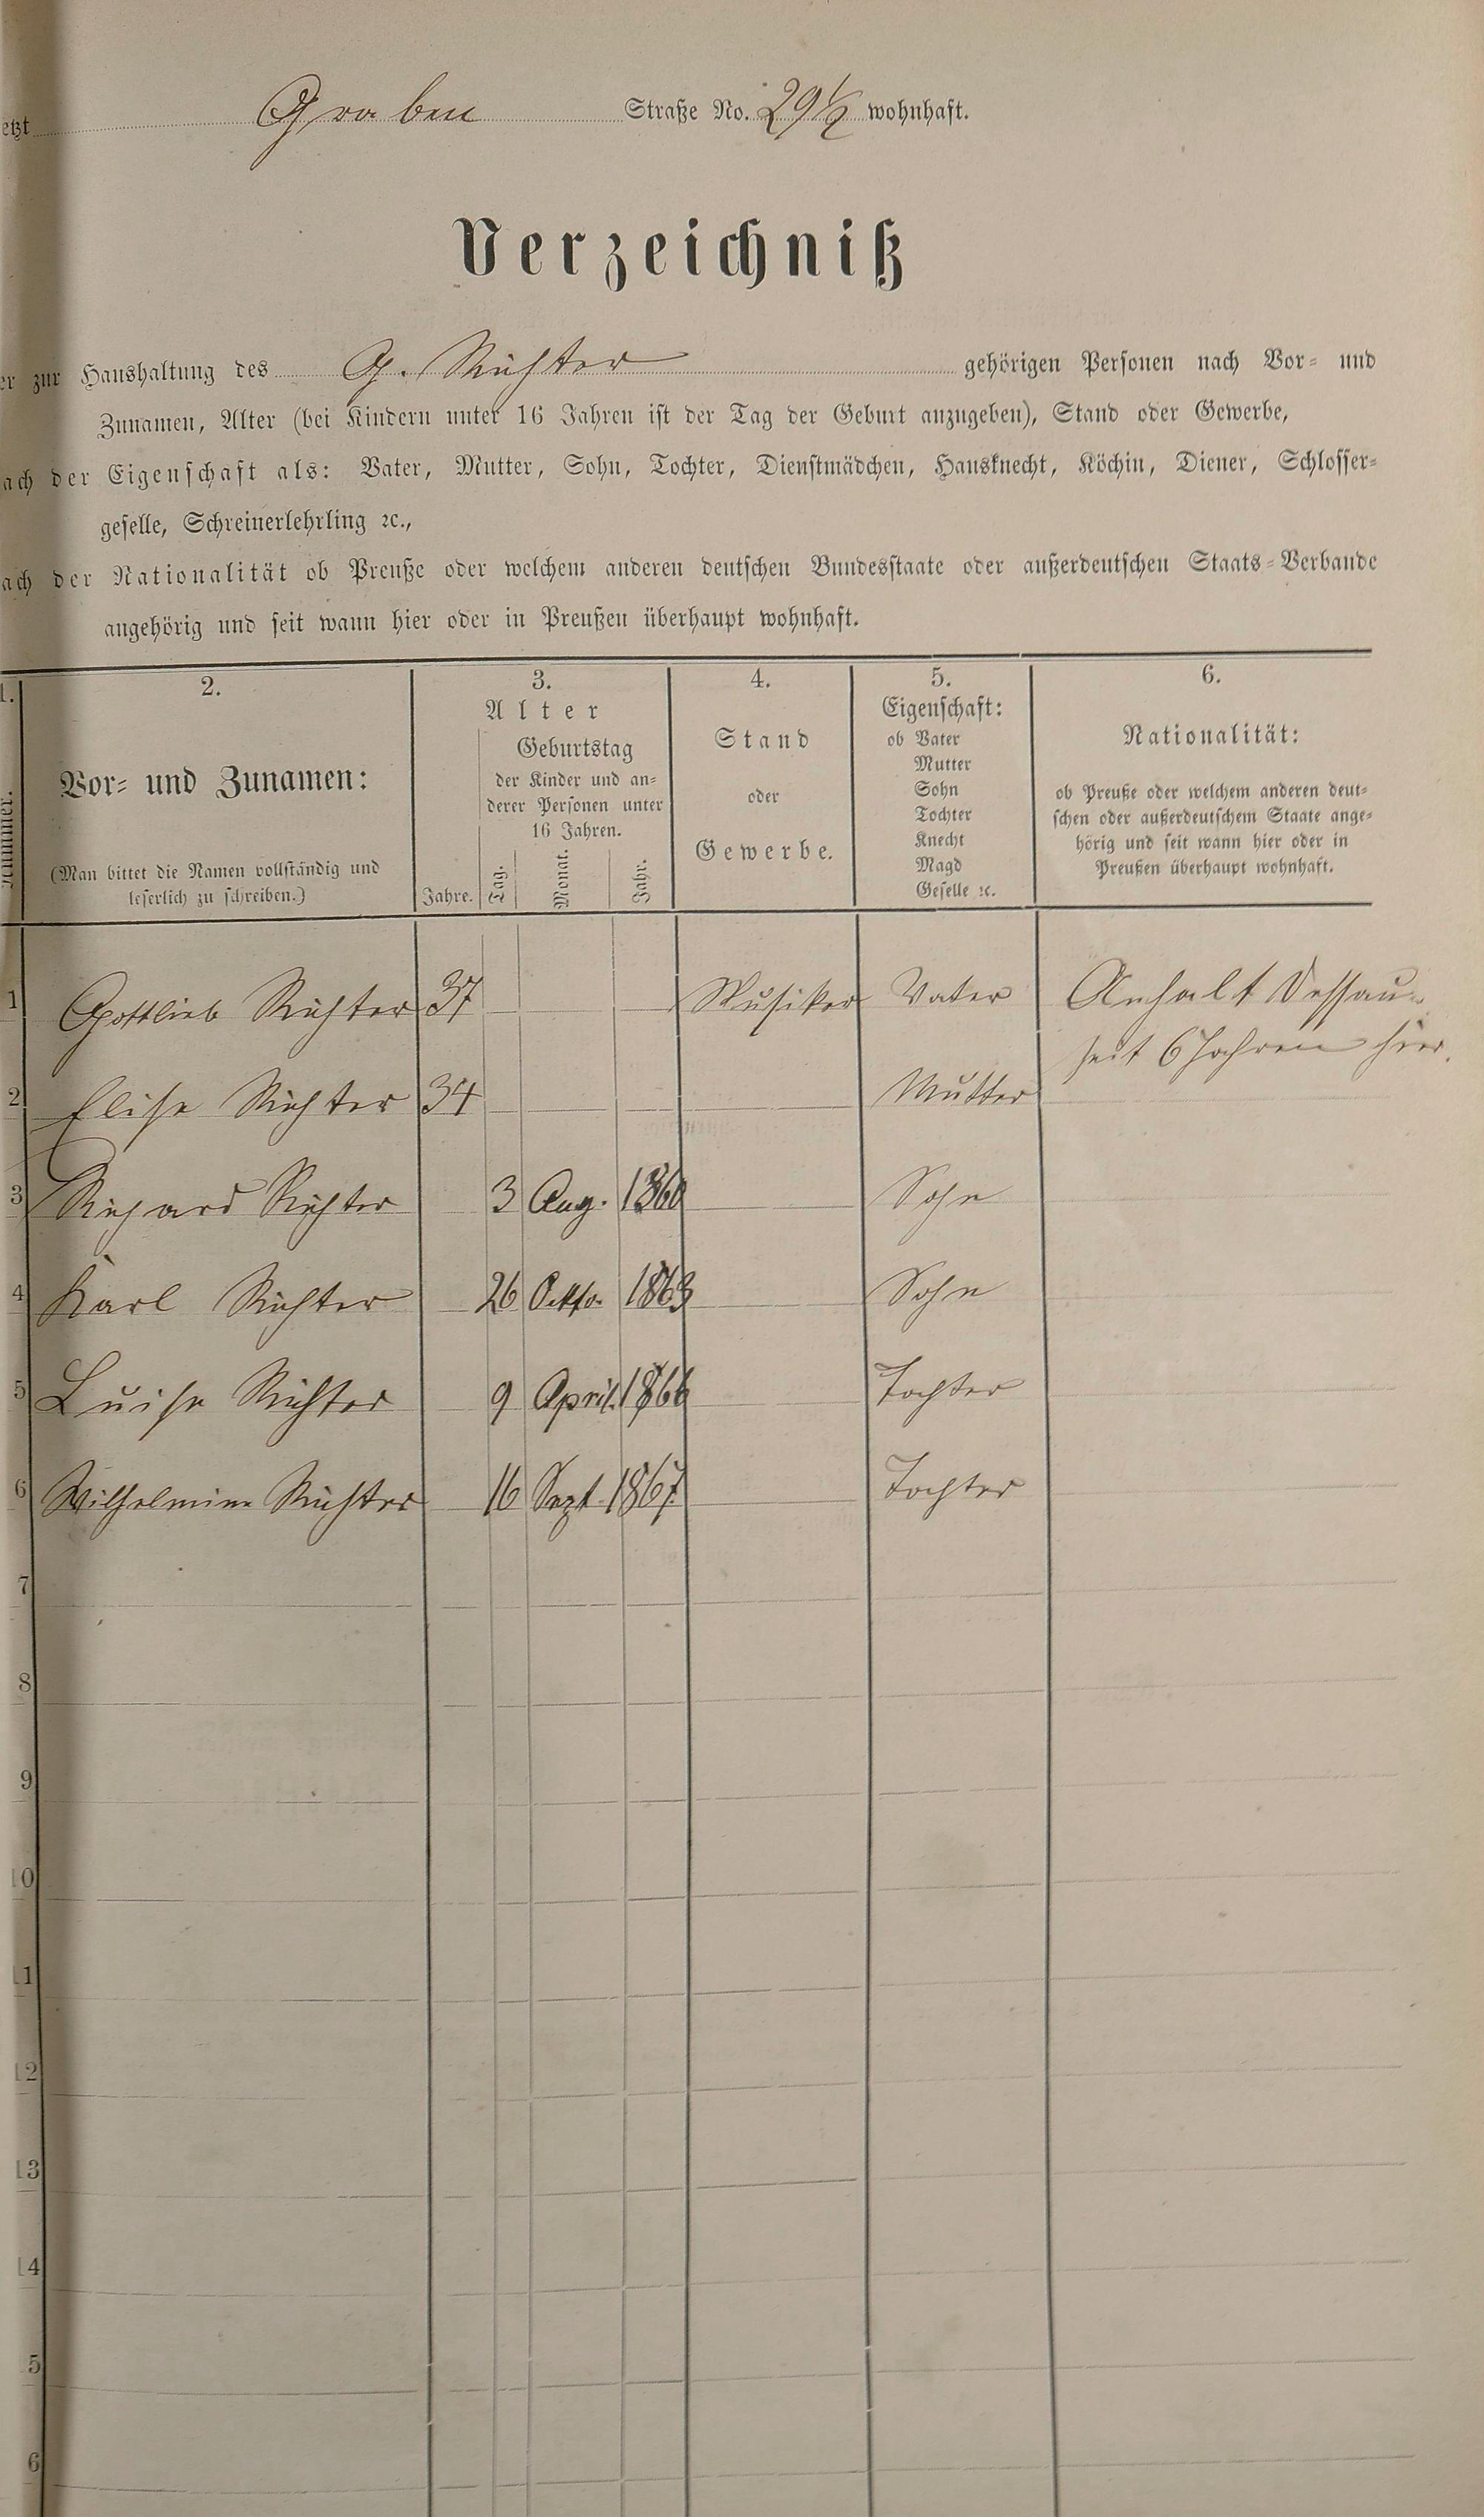 etzt Graben Straße No. 29 1/2 wohnhaft.
Verzeichniß
er zur Haushaltung des G. Richter gehörigen Personen nach Vor- und
Zunamen, Alter (bei Kindern unter 16 Jahren ist der Tag der Geburt anzugeben), Stand oder Gewerbe,
ach der Eigenschaft als: Vater, Mutter, Sohn, Tochter, Dienstmädchen, Hausknecht, Köchin, Diener, Schlosser-
geselle, Schreinerlehrling ꝛc.,
ach der Nationalität ob Preuße oder welchem anderen deutschen Bundesstaate oder außerdeutschen Staats-Verbande
angehörig und seit wann hier oder in Preußen überhaupt wohnhaft.
1.
Nummer.
2.
Vor- und Zunamen:
(Man bittet die Namen vollständig und
leserlich zu schreiben.)
3.
Alter
Jahre.
Geburtstag
der Kinder und an-
derer Personen unter
16 Jahren.
Tag. Monat. Jahr.
4.
Stand
oder
Gewerbe.
5.
Eigenschaft:
ob Vater
Mutter
Sohn
Tochter
Knecht
Magd
Geselle ꝛc.
6.
Nationalität:
ob Preuße oder welchem anderen deut-
schen oder außerdeutschem Staate ange-
hörig und seit wann hier oder in
Preußen überhaupt wohnhaft.
1 Gottlieb Richter 37 Musiker Vater Anhalt Dessau
seit 6 Jahren hier.
2 Elise Richter 34 Mutter
3 Richard Richter 3 Aug. 1860 Sohn
4 Karl Richter 26 Oktb. 1863 Sohn
5 Luise Richter 9 April. 1866 Tochter
6 Wilhelmine Richter 16 Sept 1867. Tochter
7
8
9
10
11
12
13
14
5
6